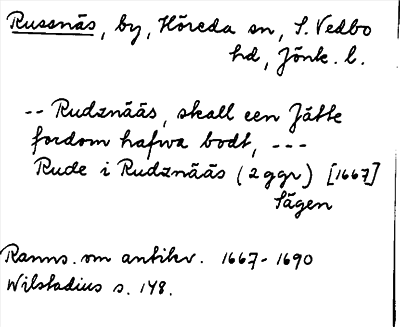 Russnäs, by, Höreda sn, S. Vedbo
hd, Jönk. l.
-- Rudznääs, skall een Jätte
fordom hafwa bodt, ---
Rude i Rudznääs (2 ggr) [1667]
Sägen
Ranns. om antikv. 1667-1690
Wilstadius s. 148.